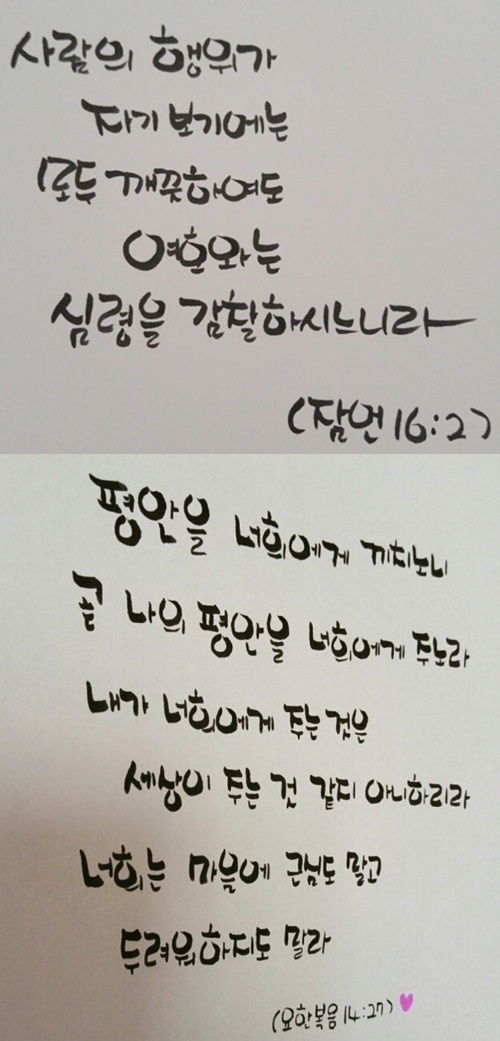 사람의 행위가
자기 보기에는
모두 깨끗하여도
여호와는
심령을 감찰하시느니라
(잠언 16:2)
평안을 너희에게 끼치노니
곧 나의 평안을 너희에게 주노라
내가 너희에게 주는 것은
세상이 주는 것 같지 아니하리라
너희는 마음에 근심도 말고
두려워하지도 말라
(요한복음 14:27)